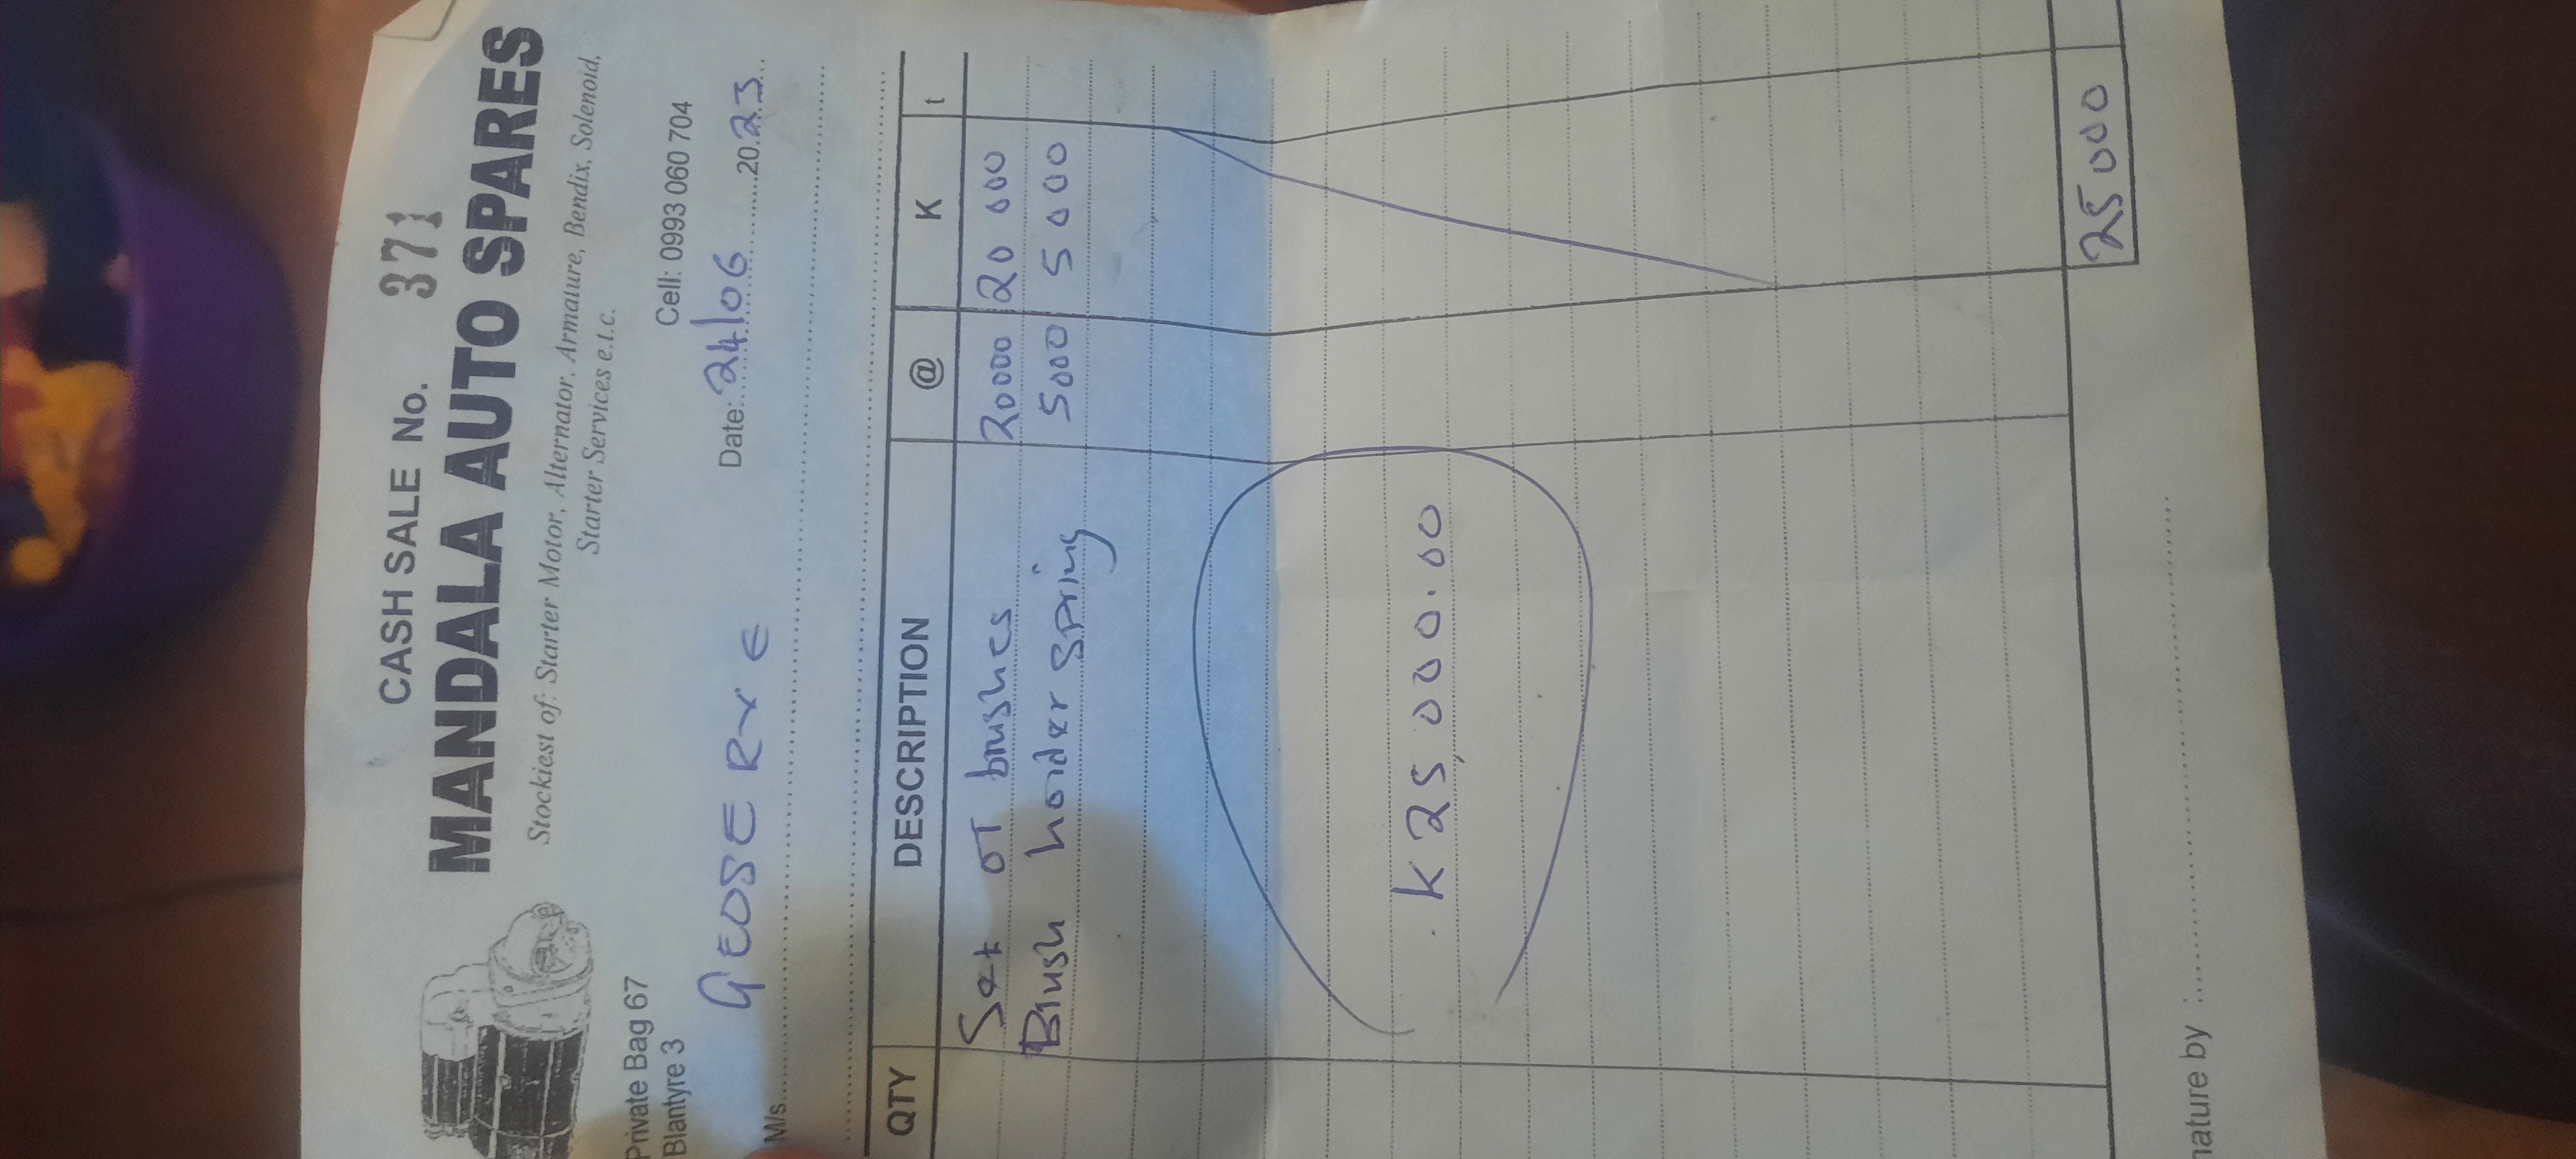 CASH SALE No. 371
MANDALA AUTO SPARES
Stockiest of: Starter Motor, Alternator, Armature, Bendix, Solenoid,
Starter Services e.t.c.
Private Bag 67
Blantyre 3
Cell: 0993 060 704
GEOSERVE
Date: 24/06 2023
M/s
QTY DESCRIPTION @ K t
Set of brushes 20000 20 000
Brush horder spring 5000 5000
K25,000.00
25000
nature by :